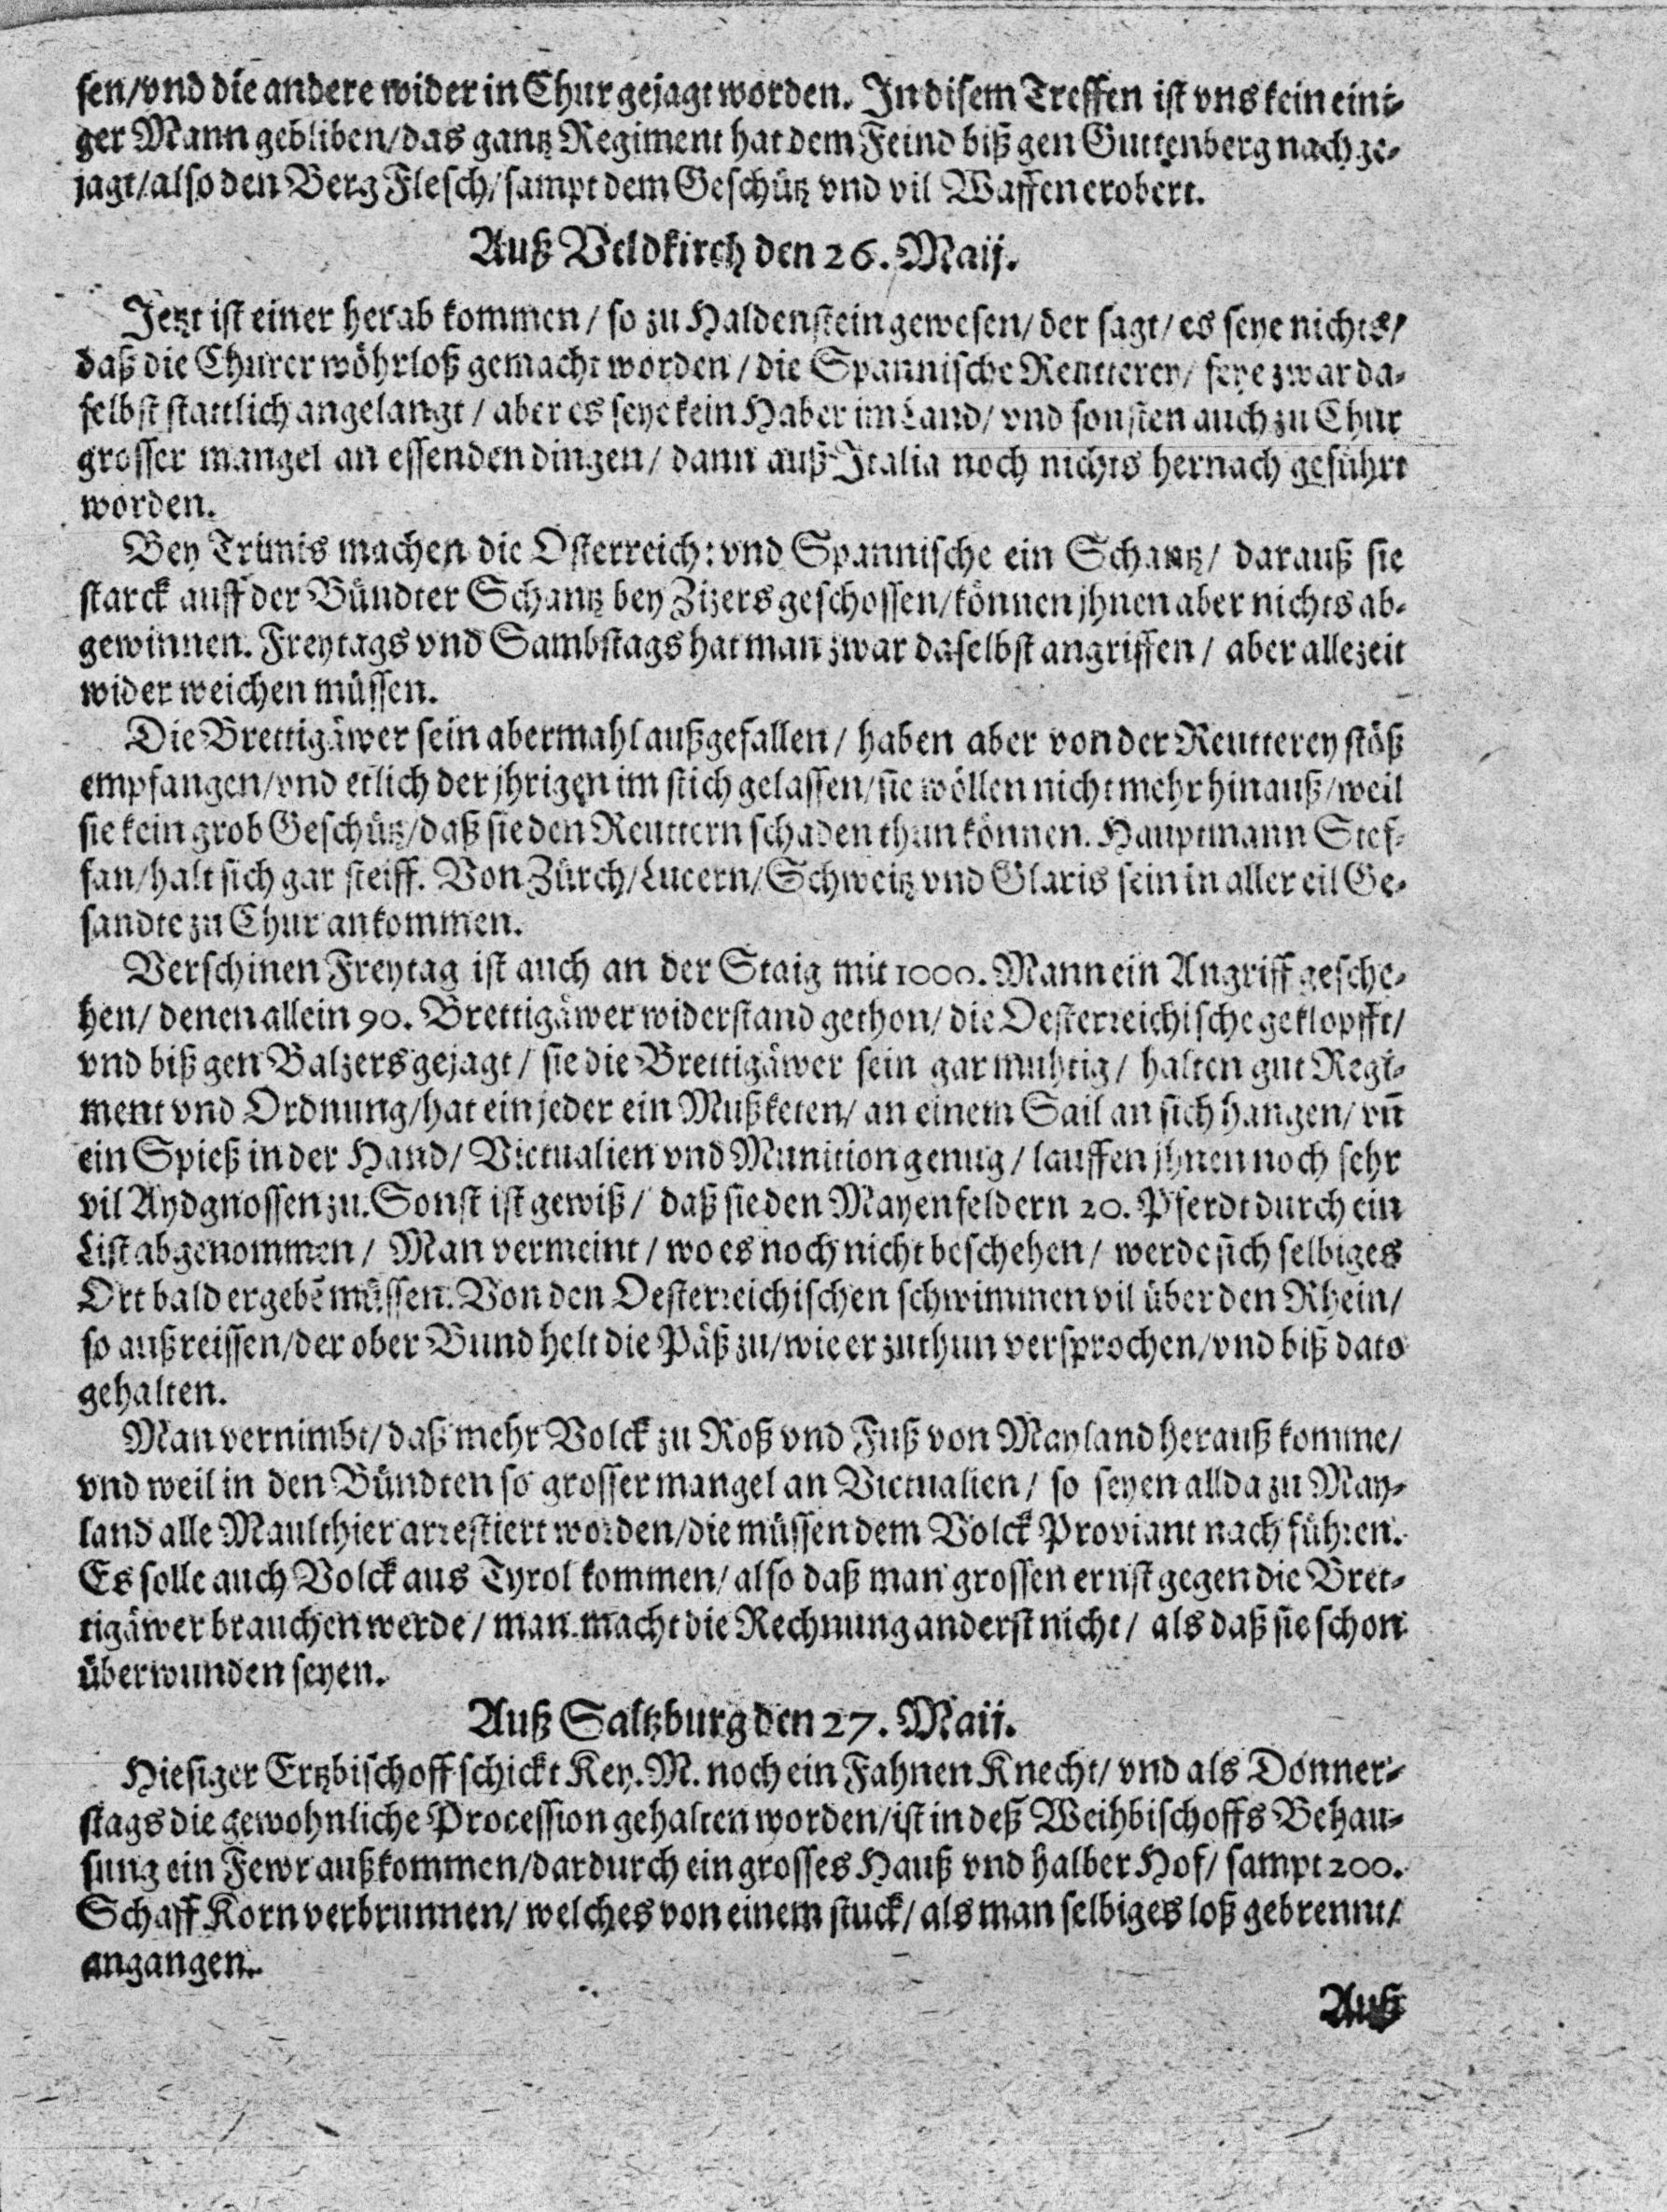 sen/vnd die andere wider in Chur gejagt worden. In disem Treffen ist vns kein eini-
ger Mann gebliben/das gantz Regiment hat dem Feind biß gen Guttenberg nach ge-
jagt/also den Berg Flesch/sampt dem Geschütz vnd vil Waffen erobert.
Auß Veldkirch den 26. Maij.
Jetzt ist einer herab kommen/ so zu Haldenstein gewesen/ der sagt/ es seye nichts/
daß die Churer wöhrloß gemacht worden/ die Spannische Reutterey/ seye zwar da-
selbst stattlich angelangt/ aber es seye kein Haber im Land/ vnd sonsten auch zu Chur
grosser mangel an essenden dingen/ dann auß Italia noch nichts hernach geführt
worden.
Bey Trimis machen die Osterreich: vnd Spannische ein Schantz/ darauß sie
starck auff der Bündter Schantz bey Zizers geschossen/können jhnen aber nichts ab-
gewinnen. Freytags vnd Sambstags hat man zwar daselbst angriffen/ aber allezeit
wider weichen müssen.
Die Brettigäwer sein abermahl außgefallen/ haben aber von der Reutterey stöß
empfangen/vnd etlich der jhrigen im stich gelassen/sie wöllen nicht mehr hinauß/weil
sie kein grob Geschütz/daß sie den Reuttern schaden thun können. Hauptmann Stef-
fan/halt sich gar steiff. Von Zürch/Lucern/Schweitz vnd Glaris sein in aller eil Ge-
sandte zu Chur ankommen.
Verschinen Freytag ist auch an der Staig mit 1000. Mann ein Angriff gesche-
hen/ denen allein 90. Brettigäwer widerstand gethon/ die Oesterreichische geklopfft/
vnd biß gen Balzers gejagt/ sie die Brettigäwer sein gar muhtig/ halten gut Regi-
ment vnd Ordnung/hat ein jeder ein Mußketen/ an einem Sail an sich hangen/ vñ
ein Spieß in der Hand/ Victualien vnd Munition genug/ lauffen jhnen noch sehr
vil Aydgnossen zu. Sonst ist gewiß/ daß sie den Mayenfeldern 20. Pferdt durch ein
List abgenommen/ Man vermeint/ wo es noch nicht beschehen/ werde sich selbiges
Ort bald ergebẽ müssen. Von den Oesterreichischen schwimmen vil über den Rhein/
so außreissen/der ober Bund helt die Päß zu/wie er zuthun versprochen/vnd biß dato
gehalten.
Man vernimbt/daß mehr Volck zu Roß vnd Fuß von Mayland herauß komme/
vnd weil in den Bündten so grosser mangel an Victualien/ so seyen allda zu May-
land alle Maulthier arrestiert worden/die müssen dem Volck Proviant nach führen.
Es solle auch Volck aus Tyrol kommen/also daß man grossen ernst gegen die Bret-
tigäwer brauchen werde/ man macht die Rechnung anderst nicht/ als daß sie schon
überwunden seyen.
Auß Saltzburg den 27. Maii.
Hiesiger Ertzbischoff schickt Key. M. noch ein Fahnen Knecht/ vnd als Donner-
stags die gewohnliche Procession gehalten worden/ist in deß Weihbischoffs Behau-
sung ein Fewr außkommen/dardurch ein grosses Hauß vnd halber Hof/ sampt 200.
Schaff Korn verbrunnen/ welches von einem stuck/ als man selbiges loß gebrennt/
angangen.
Auß